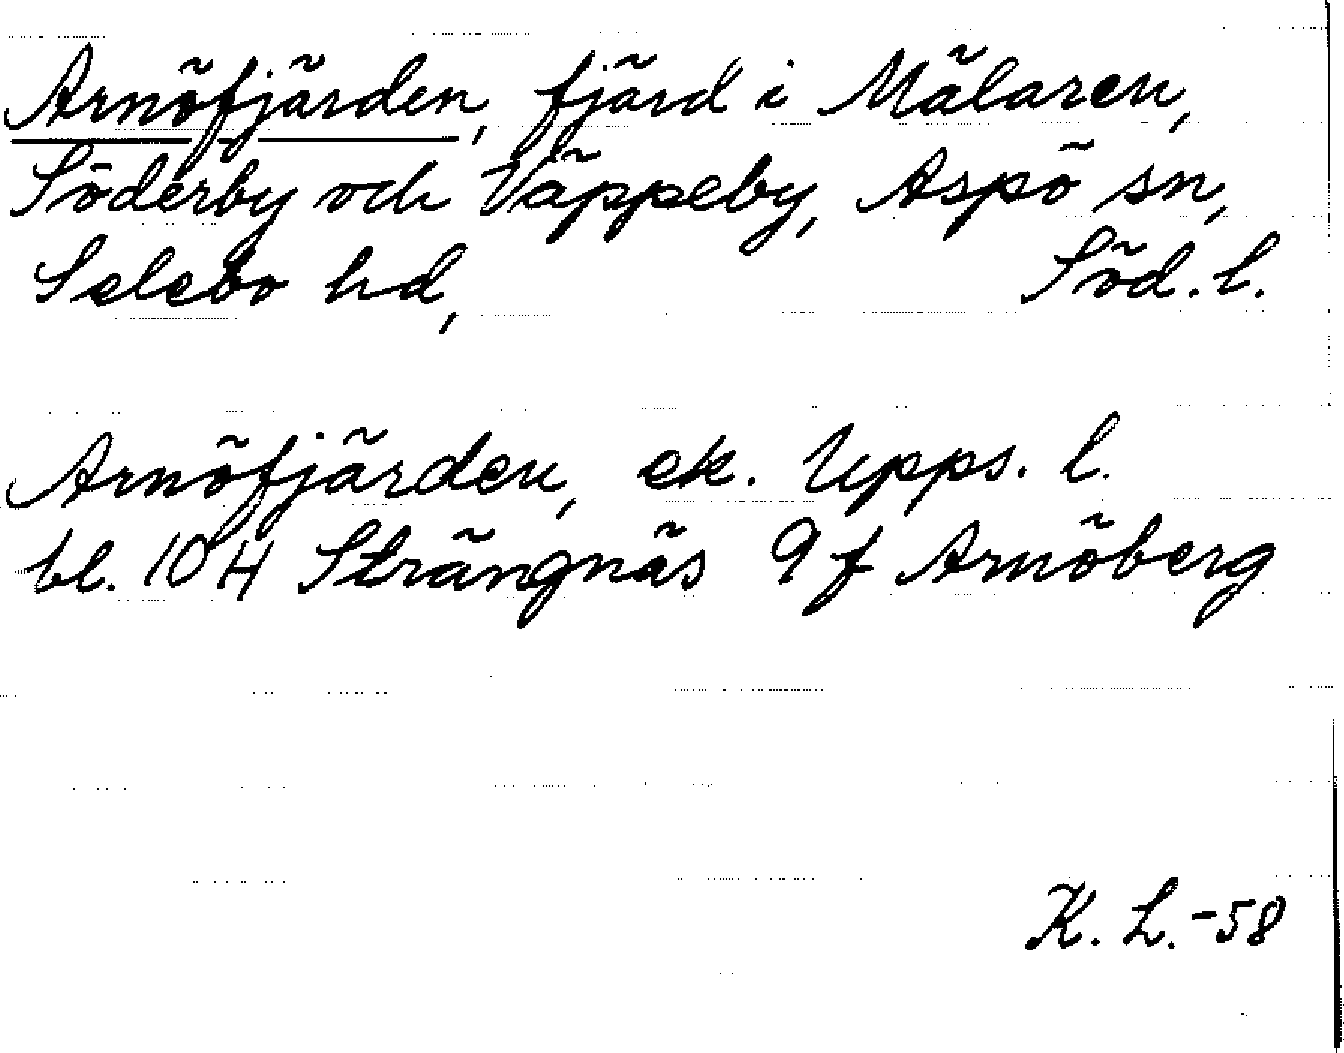 Arnöfjärden, fjärd i Mälaren,
Söderby och Väppeby, Aspö sn,
Selebo hd, Söd. l.
Arnöfjärden, ek. Upps. l.
bl. 10 H Strängnäs 9 f Arnöberg
K. L. -58